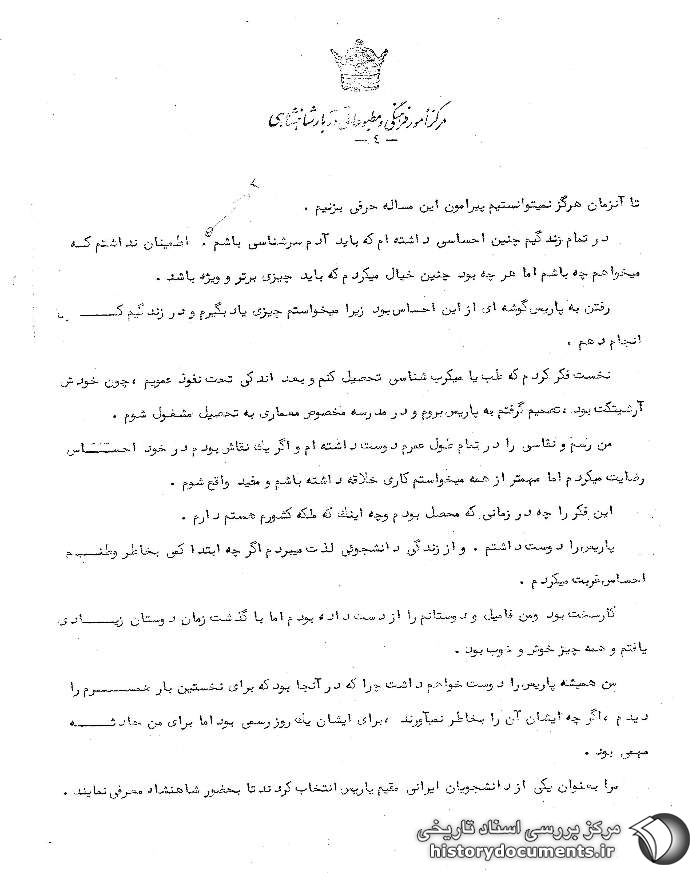 مرکز امور فرهنگی و مطبوعاتی دربار شاهنشاهی
- ٤ -
تا آنزمان هرگز نمیتوانستیم پیرامون این مساله حرفی بزنیم .
در تمام زندگیم چنین احساسی داشته ام که باید آدم سرشناسی باشم . اطمینان نداشتم کـه
میخواهم چه باشم اما هر چه بود چنین خیال میکردم که باید چیزی برتر و ویژه باشد .
رفتن به پاریس گوشه ای از این احساس بود زیرا میخواستم چیزی یاد بگیرم و در زندگیم
انجام دهم .
نخست فکر کردم که طب یا میکرب شناسی تحصیل کنم و بعد اندکی تحت نفوذ عمویم ، چون خودش
آرشیتکت بود ، تصمیم گرفتم به پاریس بروم و در مدرسه مخصوص معماری به تحصیل مشغول شوم .
من رسم و نقاسی را در تمام طول عمرم دوست داشته ام و اگر یك نقاش بودم در خود احســـاس
رضایت میکردم اما مهمتر از همه میخواستم کاری خلاقه داشته باشم و مفید واقع شوم .
این فکر را چه در زمانی که محصل بودم وچه اینك که ملکه کشورم هستم دارم .
پاریس را دوست داشتم . و از زندگی دانشجوئی لذت میبردم اگر چه ابتدا کمی بخاطر وطنـــم
احساس غربت میکردم .
کارسخت بود ومن فامیل و دوستانم را از دست داده بودم اما با گذشت زمان دوستان زیـــادی
یافتم و همه چیز خوش و خوب بود .
من همیشه پاریس را دوست خواهم داشت چرا که در آنجا بود که برای نخستین بار همســـرم را
دیدم ، اگر چه ایشان آن را بخاطر نمیآورند ، برای ایشان یك روز رسمی بود اما برای من حادثـــه
مهمی بود .
مرا بعنوان یکی از دانشجویان ایرانی مقیم پاریس انتخاب کردند تا بحضور شاهنشاه معرفی نمایند .
مرکز بررسی اسناد تاریخی
historydocuments.ir